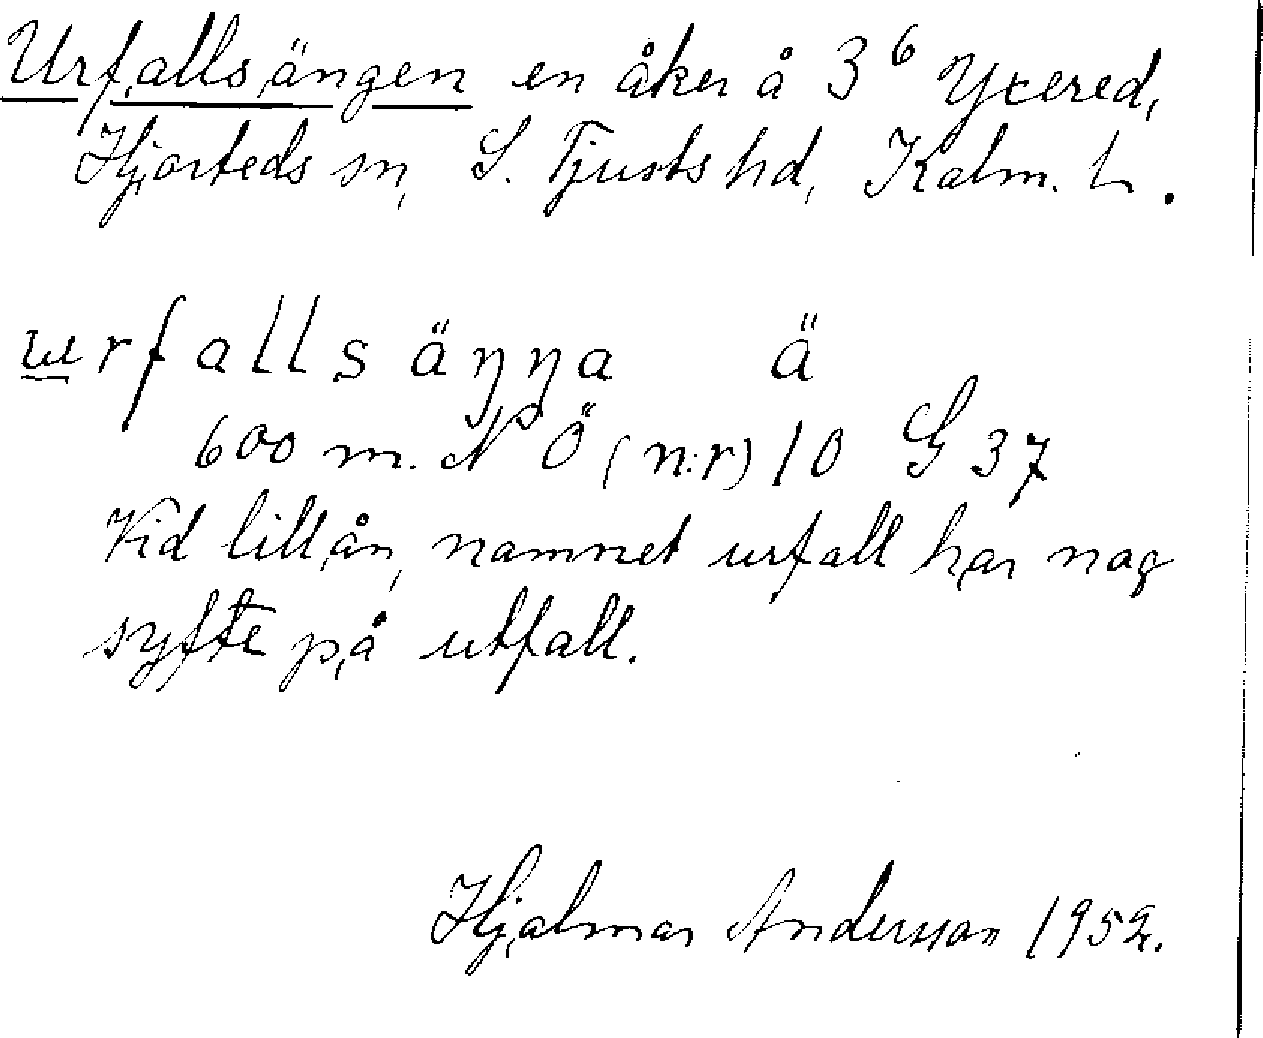 Urfallsängen en åker å 3⁶ Yxered,
Hjorteds sn, S. Tjusts hd, Kalm. L.
urfallsäŋŋa ä
600 m. NÖ (n:r) 10 G 37
Vid lillån, namnet urfall har nog
syfte på utfall.
Hjalmar Andersson 1952.